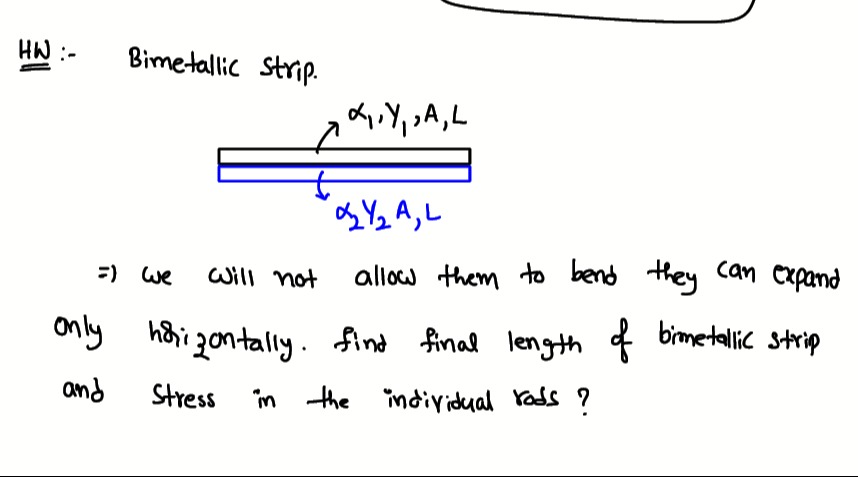 HW :- Bimetallic strip.
α₁, Y₁, A, L
α₂ Y₂ A, L
⇒) we will not allow them to bend they can expand
only horizontally. find final length of bimetallic strip
and stress in the individual rods ?